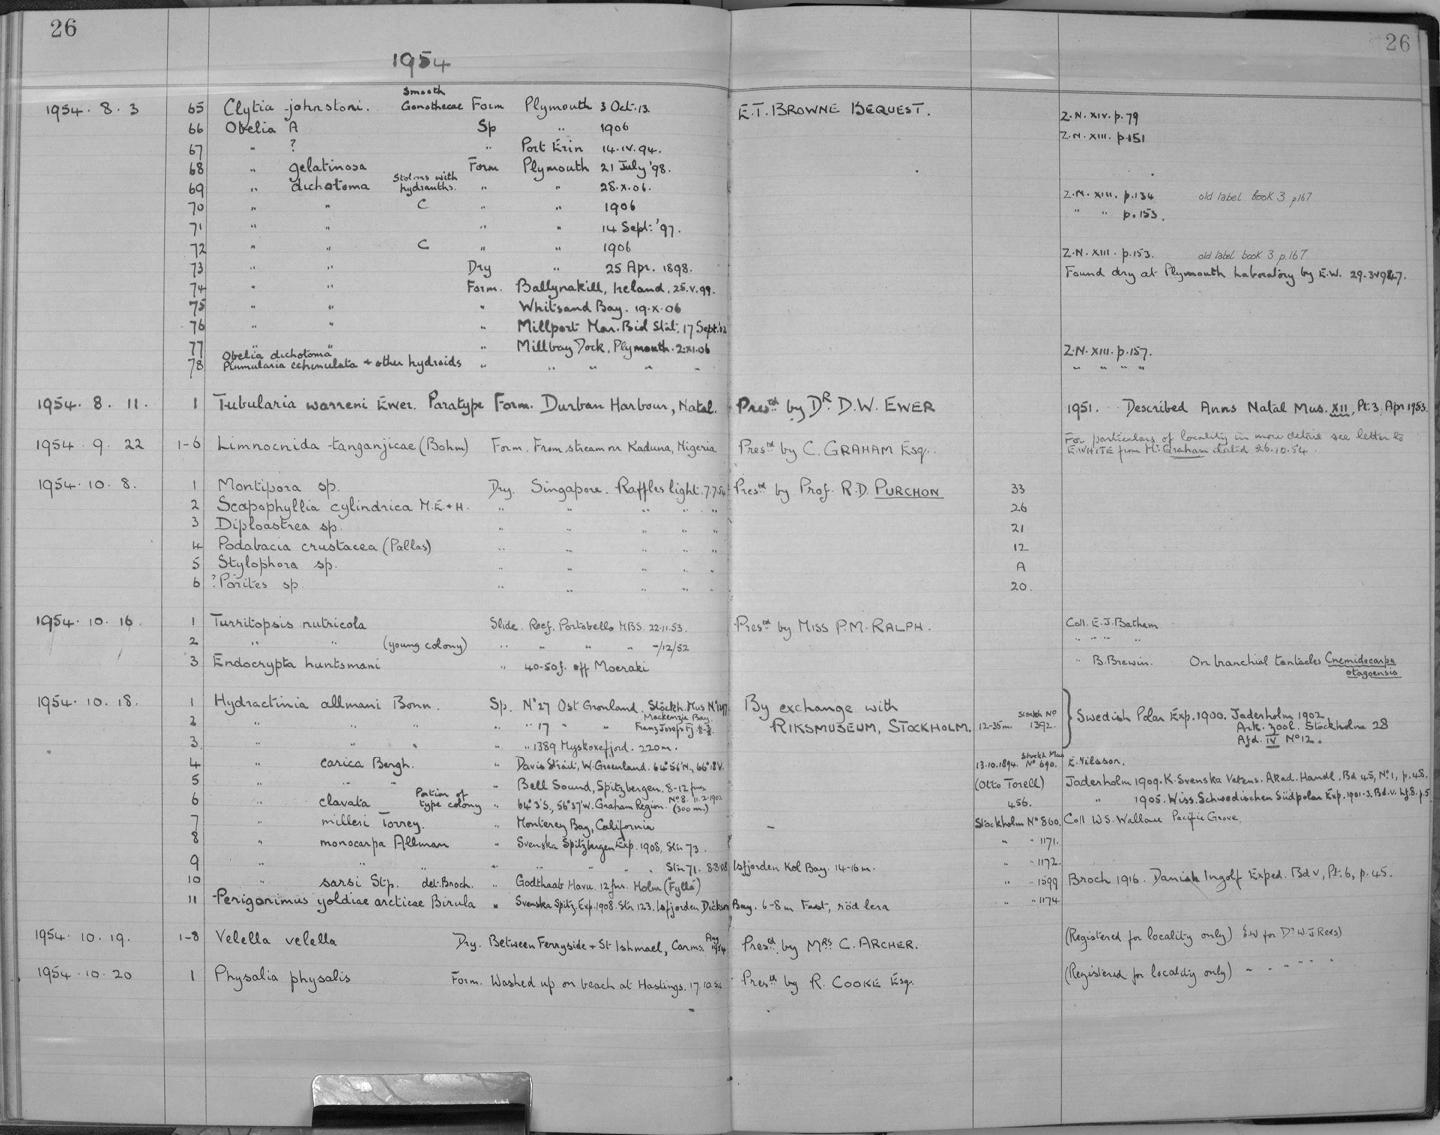 26
26
1954
1954. 8. 3 65 Clytia johnstoni. Smooth Gonothecae Form Plymouth 3 Oct. 13. E.T. BROWNE BEQUEST. Z.N. XIV. p. 79
66 Obelia A Sp " 1906 Z.N. XIII. p. 151
67 " ? " Port Erin 14.IV.94.
68 " gelatinosa Form Plymouth 21 July '98.
69 " dichotoma Stolons with hydranths. " " 28.X.06. Z.N. XIII. p. 134 old label book 3 p 167
70 " " C " " 1906 " " p. 153.
71 " " " " 14 Sept. '97.
72 " " C " " 1906 Z.N. XIII. p. 153. old label book 3 p. 167
73 " " Dry " 25 Apr. 1898. Found dry at Plymouth Laboratory by E.W.
74 " " Form. Ballynakill, Ireland. 25.V.99.
75 " " " Whitsand Bay. 19.X.06
76 " " " Millport Mar. Biol Stat. 17 Sept.
77 " " " Millbay Dock, Plymouth. 2.XI.06 Z.N. XIII. p. 157.
78 Obelia dichotoma Plumularia echinulata + other hydroids " " " " " " " " "
1954. 8. 11. 1 Tubularia warreni Ewer. Paratype Form. Durban Harbour, Natal. Presd by Dr. D.W. EWER 1951. Described Anns Natal Mus. XII, Pt. 3, Apr 1953.
1954. 9. 22 1-6 Limnocnida tanganjicae (Bohm) Form. From stream nr Kaduna, Nigeria Presd by C. GRAHAM Esq. For particulars of locality in more detail see letter to
E. WHITE from Mr. Graham dated 26.10.54.
1954. 10. 8. 1 Montipora sp. Dry. Singapore. Raffles light. 7.7.54 Presd by Prof. R.D. PURCHON 33
2 Scapophyllia cylindrica M.E + H. " " " " " 26
3 Diploastrea sp. " " " " 21
4 Podabacia crustacea (Pallas) " " " " 12
5 Stylophora sp. " " " " A
6 ? Porites sp. " " " " 20.
1954. 10. 16. 1 Turritopsis nutricola Slide. Reef. Portobello MBS. 22.11.53. Presd by MISS P.M. RALPH. Coll. E.J. Batham
2 " " (young colony) " " " " -/12/52 " " " "
3 Endocrypta huntsmani " 40-50f. off Moeraki " B. Brewin. On branchial tentacles Cnemidocarpa otagoensis
1954. 10. 18. 1 Hydractinia allmani Bonn. Sp. No 27 Ost Gronland. Stockh. Mus No By exchange with
2 " " " " 17 " " Mackenzie Bay. Franz Josefs Fj. RIKSMUSEUM, STOCKHOLM. 12-35m. Stockh No 1392. Swedish Polar Exp. 1900. Jaderholm 1902
Ark. Zool. Stockholm 28
Afd. IV No 12.
3 " " " " 1389 Myskoxefjord. 220m.
4 " carica Bergh. " Davis Strait, W. Greenland. 64°56'N., 66°18'W. 13.10.1894. Stockh Mus No 690. E. Nilsson.
5 " " " " Bell Sound, Spitzbergen. 8-12fms (Otto Torell) Jaderholm 1909. K. Svenska Vetens. Akad. Handl. Bd 45, No 1, p. 48.
6 " clavata Portion of type colony " 64°3'S., 56°37'W. Graham Region. No 8. 11.2.1902 (300 m.) 456. " 1905. Wiss. Schwedischen Südpolar Exp. 1901-3. Bd. V. Lf. 8. p. 5
7 " milleri Torrey. " Monterey Bay, California - Stockholm No 860. Coll W.S. Wallace Pacific Grove.
8 " monocarpa Allman " Svenska Spitzbergen Exp. 1908, Stn 73. " - 1171.
9 " " " " " Stn 71. 8.8.08 Isfjorden Kol Bay. 14-16m. " - 1172.
10 " sarsi Stp. det. Broch. " Godthaab Havn. 12fms. Holm (Fylla) " - 1599 Broch 1916. Danish Ingolf Exped. Bd V, Pt. 6, p. 45.
11 Perigonimus yoldiae arcticae Birula " Svenska Spitz. Exp. 1908. Stn 123. Isfjorden Dickson Bay. 6-8m Fast, röd lera " - 1174
1954. 10. 19. 1-8 Velella velella Dry. Between Ferryside + St Ishmael, Carms. Aug 1954. Presd. by Mrs C. ARCHER. (Registered for locality only) E.W for Dr W.J Rees)
1954. 10. 20 1 Physalia physalis Form. Washed up on beach at Hastings. 17.10.54 Presd by R. COOKE Esq. (Registered for locality only) " " " " "